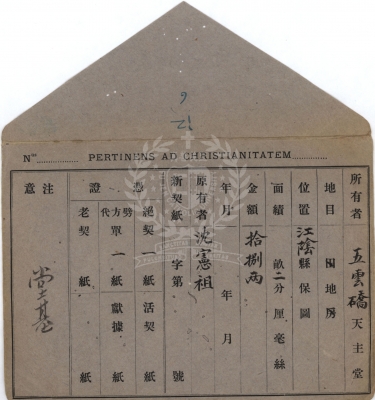 Nᵘˢ PERTINENS AD CHRISTIANITATEM
所有者 五雲礄 天主堂
地目 田地房
位置 江陰縣保圖
面績 畝二分厘毫絲
金額 拾捌兩
年月 年月
原有者 沈憲祖
新契紙 字第 號
憑證
絕契一紙 活契 紙
勞代方單一紙 獻據 紙
老契 紙
注意